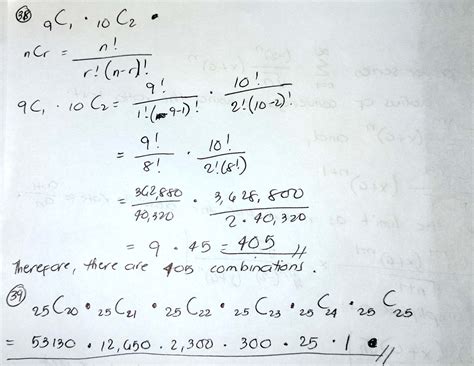 38) ₉C₁ · ₁₀C₂ ·
nCr = n! / r!(n-r)!
9C₁ · 10C₂ = 9! / 1!(9-1)! · 10! / 2!(10-2)!
= 9! / 8! · 10! / 2!(8!)
= 362,880 / 40,320 · 3,628,800 / 2 · 40,320
= 9 · 45 = 405 //
Therefore, there are 405 combinations.
39) ₂₅C₂₀ · ₂₅C₂₁ · ₂₅C₂₂ · ₂₅C₂₃ · ₂₅C₂₄ · ₂₅C₂₅
= 53130 · 12,650 · 2,300 · 300 · 25 · 1 //